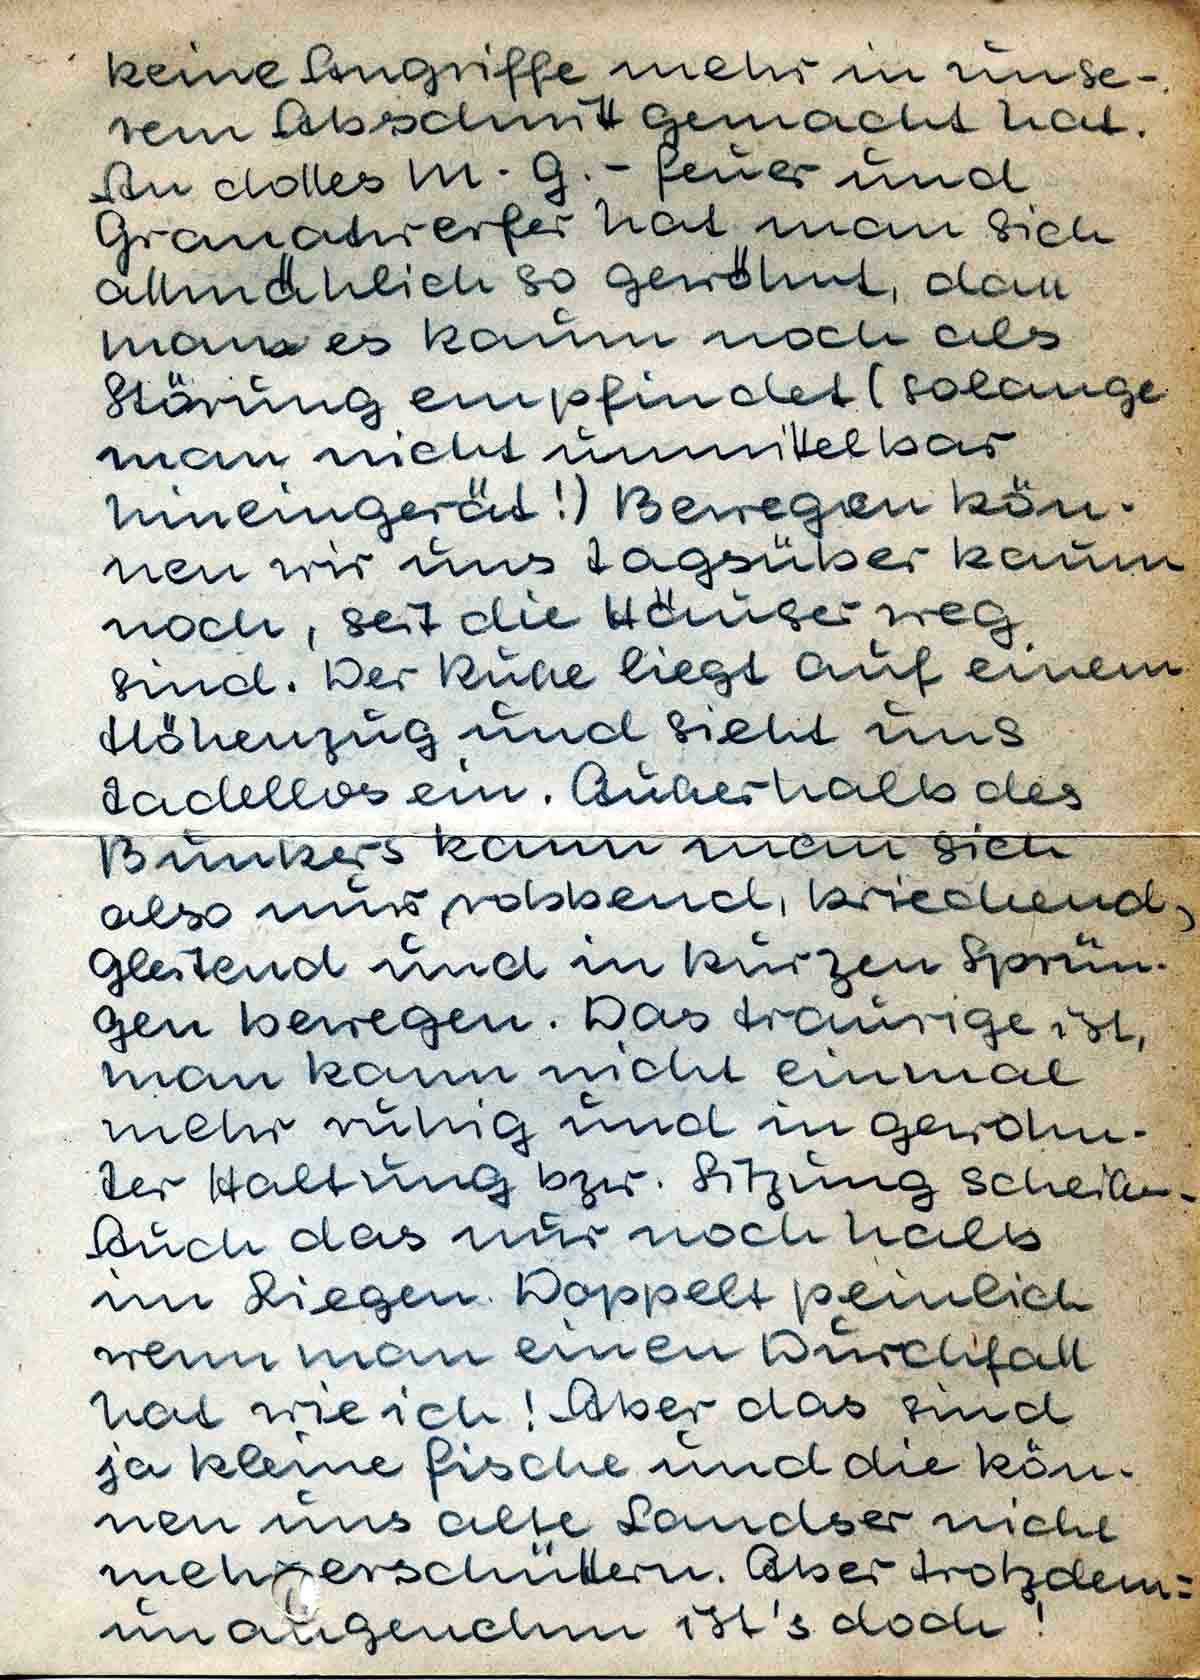 keine Angriffe mehr in unse-
rem Abschnitt gemacht hat.
An dolles M.G.-feuer und
Granatwerfer hat man sich
allmählich so gewöhnt, daß
man es kaum noch als
Störung empfindet (solange
man nicht unmittelbar
hineingerät!) Bewegen kön-
nen wir uns tagsüber kaum
noch, seit die Häuser weg
sind. Der Ruße liegt auf einem
Höhenzug und sieht uns
tadellos ein. Außerhalb des
Bunkers kann man sich
also nur robbend, kriechend,
gleitend und in kurzen Sprün-
gen bewegen. Das traurige ist,
man kann nicht einmal
mehr ruhig und in gewohn-
ter Haltung bzw. Sitzung scheiben.
Auch das nur noch halb
im Liegen. Doppelt peinlich
wenn man einen Durchfall
hat wie ich! Aber das sind
ja kleine fische und die kön-
nen uns alte Landser nicht
mehr erschüttern. Aber trotzdem:
unangenehm ist's doch!